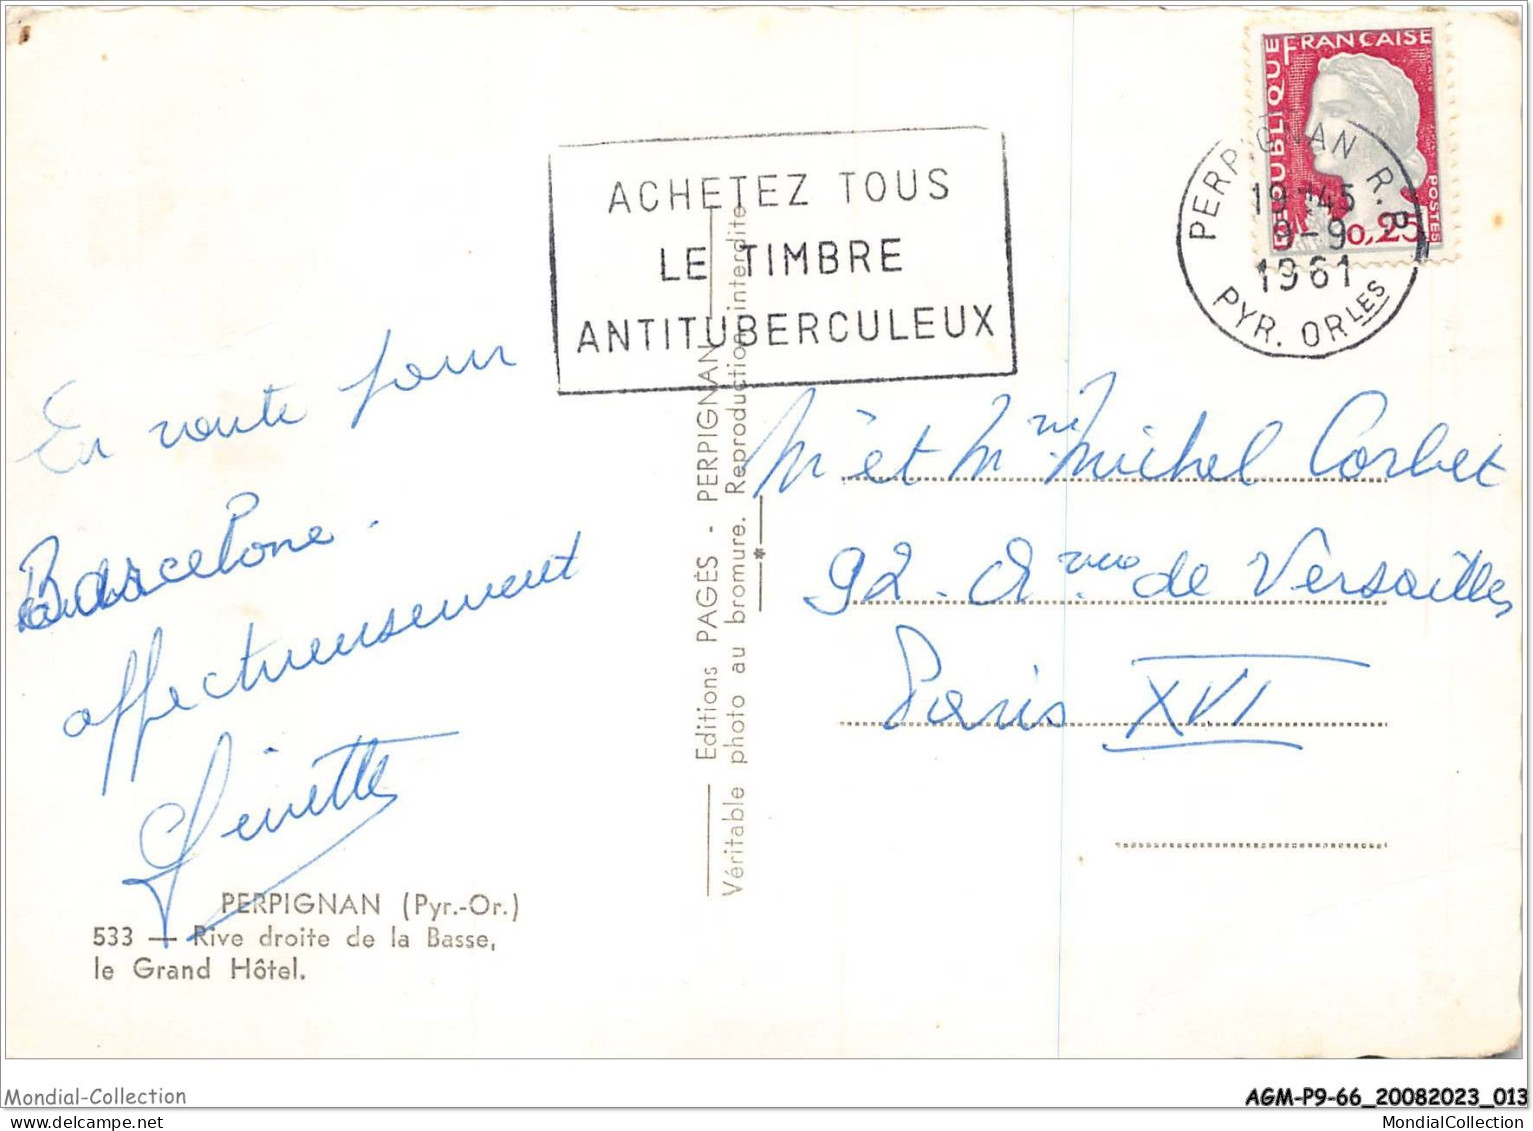 RÉPUBLIQUE FRANÇAISE
POSTES
0,25
PERPIGNAN R.P.
19H45
9-9
1961
PYR. ORLES
ACHETEZ TOUS
LE TIMBRE
ANTITUBERCULEUX
En route pour
Barcelone.
affectueusement
Ginette
PERPIGNAN (Pyr.-Or.)
533 — Rive droite de la Basse,
le Grand Hôtel.
Editions PAGÈS - PERPIGNAN
Véritable photo au bromure. Reproduction interdite
Mr et Mme Michel Corbet
92. Avenue de Versailles
Paris XVI
Mondial-Collection
AGM-P9-66_20082023_013
MondialCollection